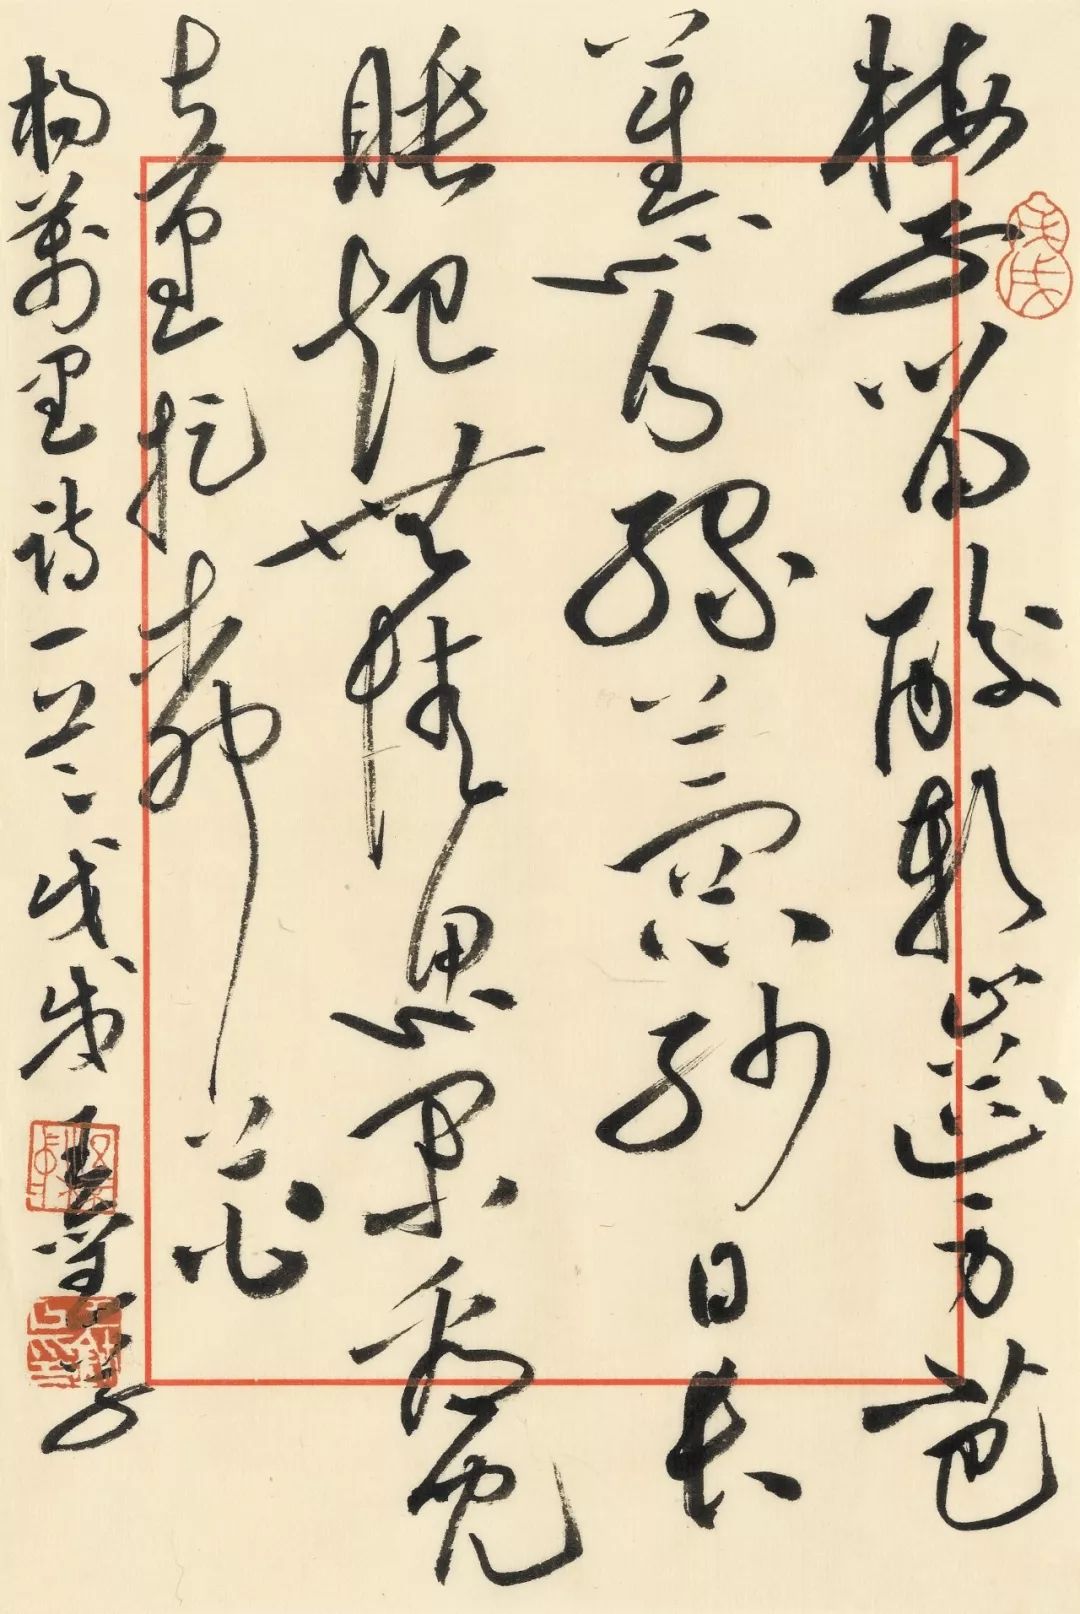 梅子留酸軟齒牙芭
蕉分綠與窗紗日長
睡起無情思閒看兒
童捉柳花
楊萬里詩一首戊戌
戊戌